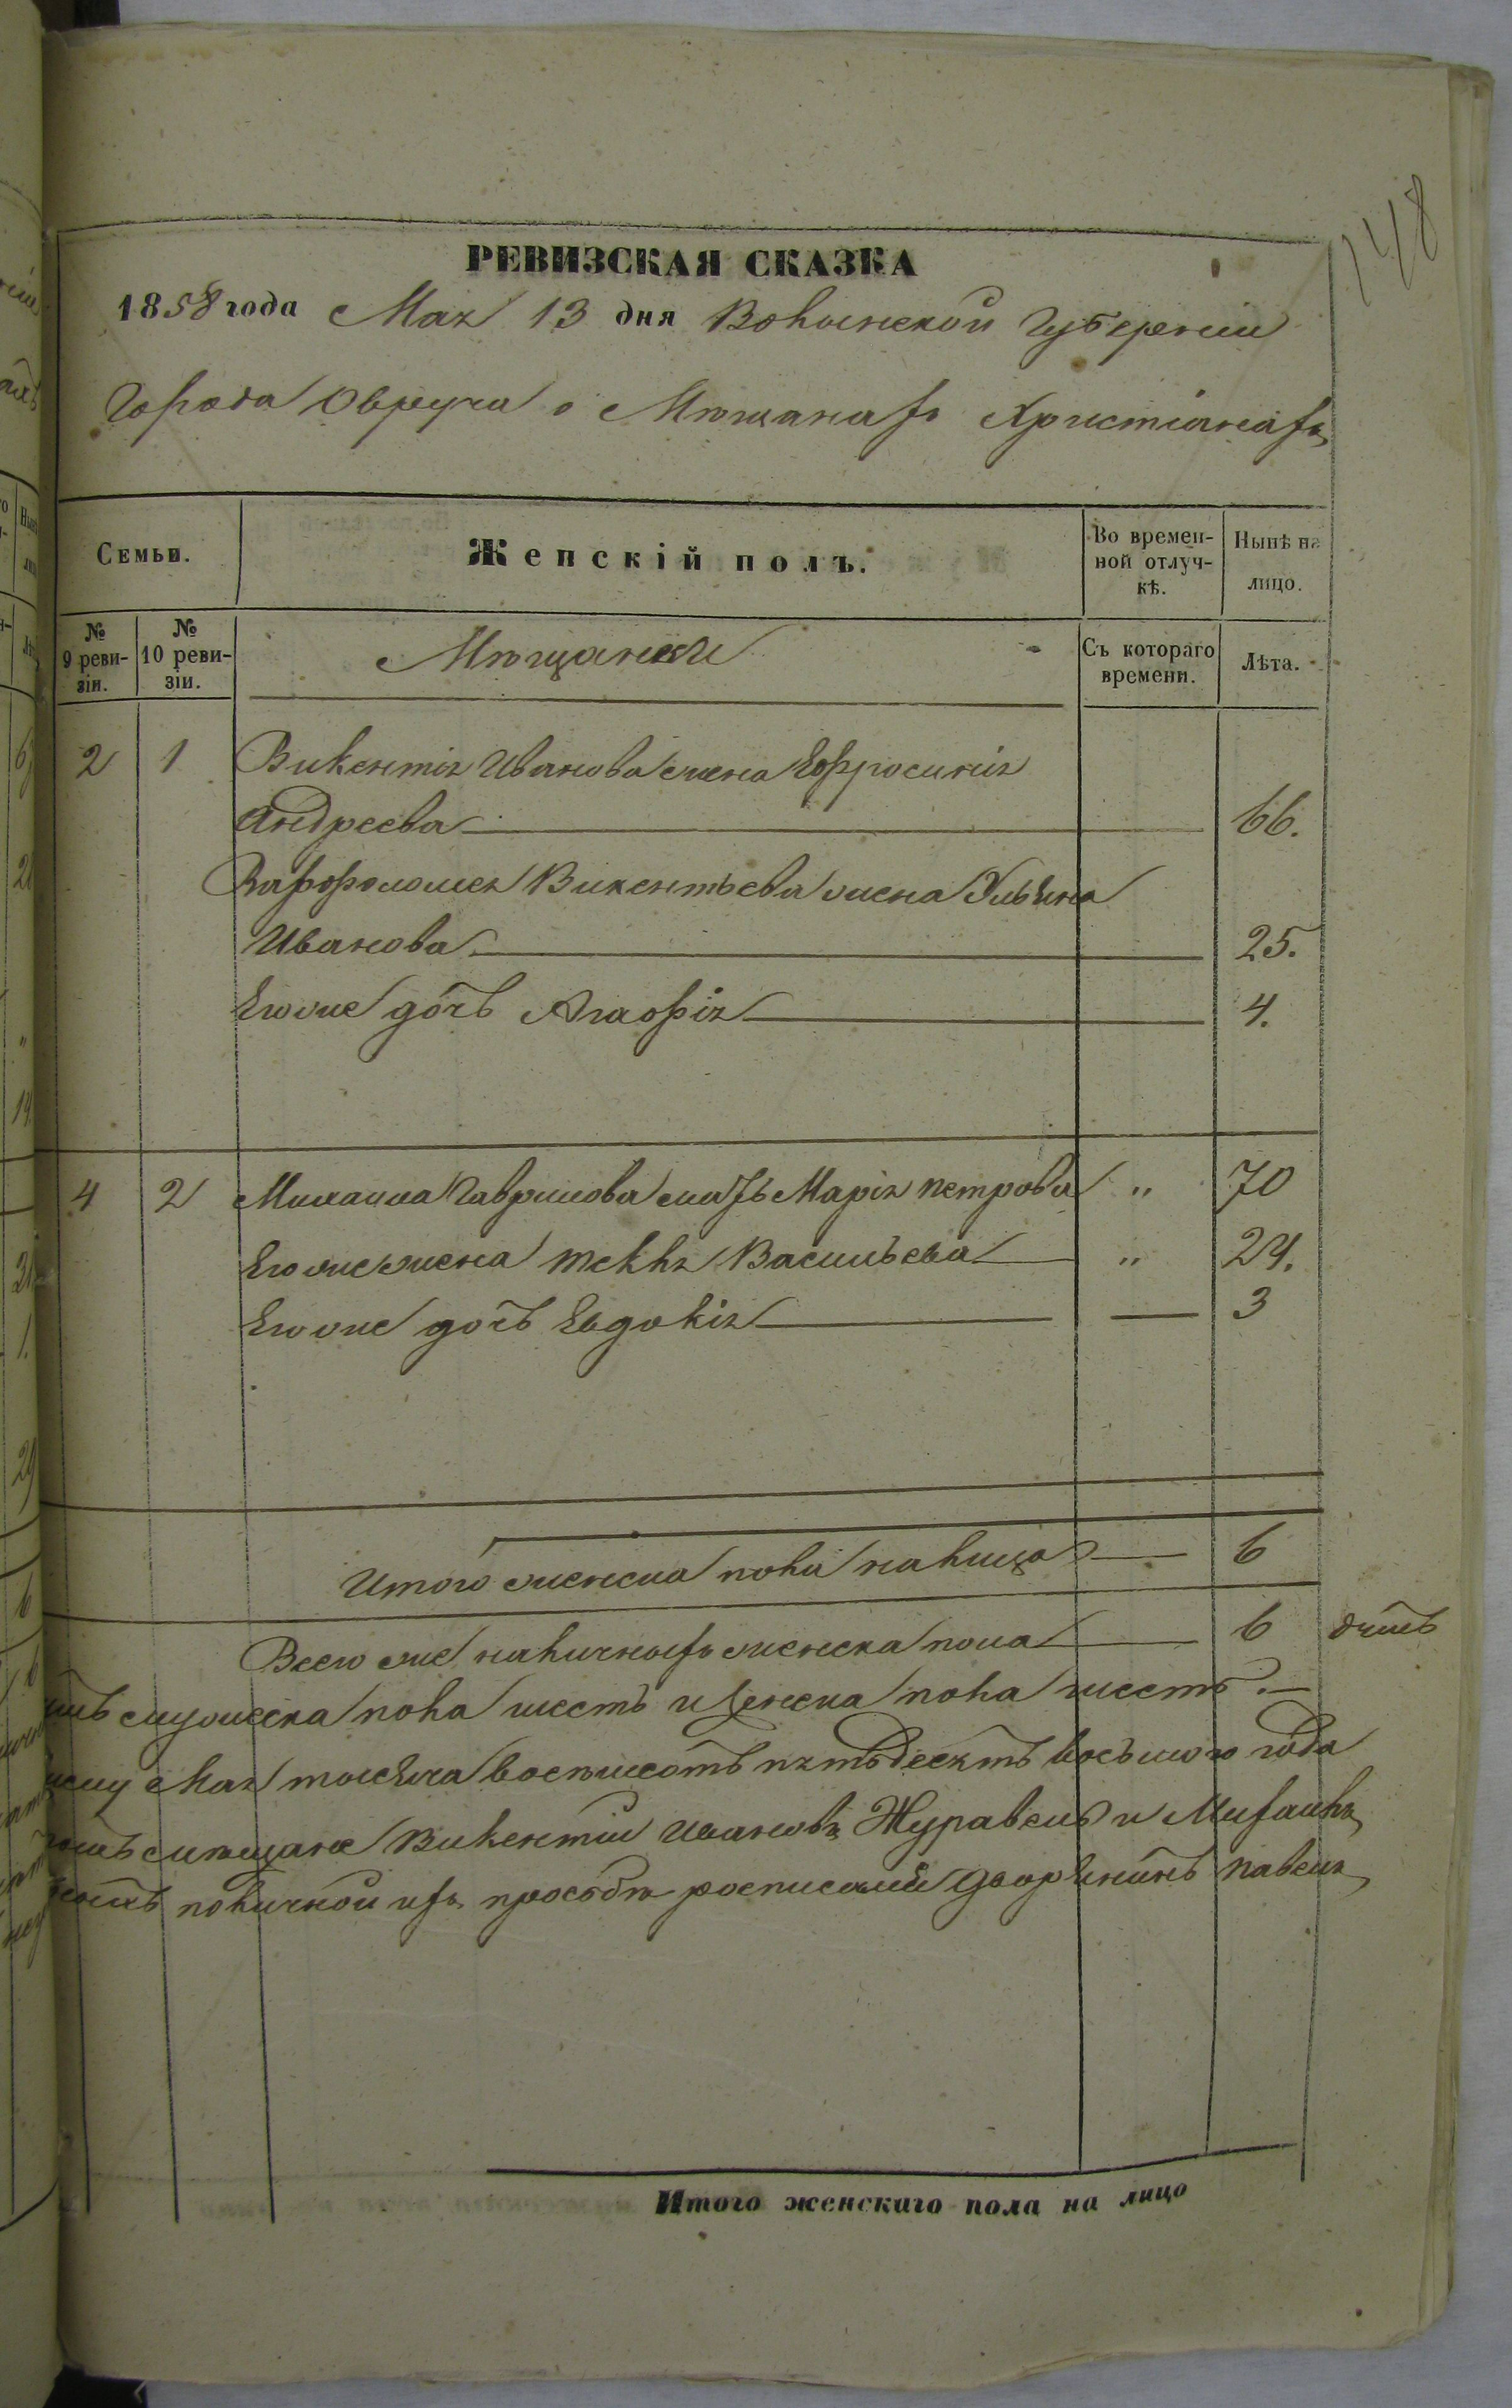 148
РЕВИЗСКАЯ СКАЗКА
1858 года Мая 13 дня Волынской Губерніи
Города Овруча о Мѣщанахъ Христіанахъ
Семьи.
Женскій полъ.
Во времен-
ной отлуч-
кѣ.
Нынѣ на
лицо.
№
9 реви-
зіи.
№
10 реви-
зіи.
Мѣщанки
Съ котораго
времени.
Лѣта.
2 1 Викентія Иванова жена Ефросинія
Андреева 66.
Варфоломея Викентьева жена Ульяна
Иванова 25.
Егоже дочь Агафія 4.
4 2 Михаила Гаврилова мать Марія Петрова " 70
Егоже жена Текля Васильева " 24.
Егоже дочь Евдокія 3
Итого женска пола на лицо 6
Всего же наличныхъ женска пола 6
мужеска пола шесть и женска пола шесть.
Мая тысяча восемсотъ пятьдесятъ восьмого года
мѣщане Викентій Ивановъ Журавель и Михаилъ
по личной ихъ прозьбѣ росписался Дворянинъ Павелъ
Итого женскаго пола на лицо